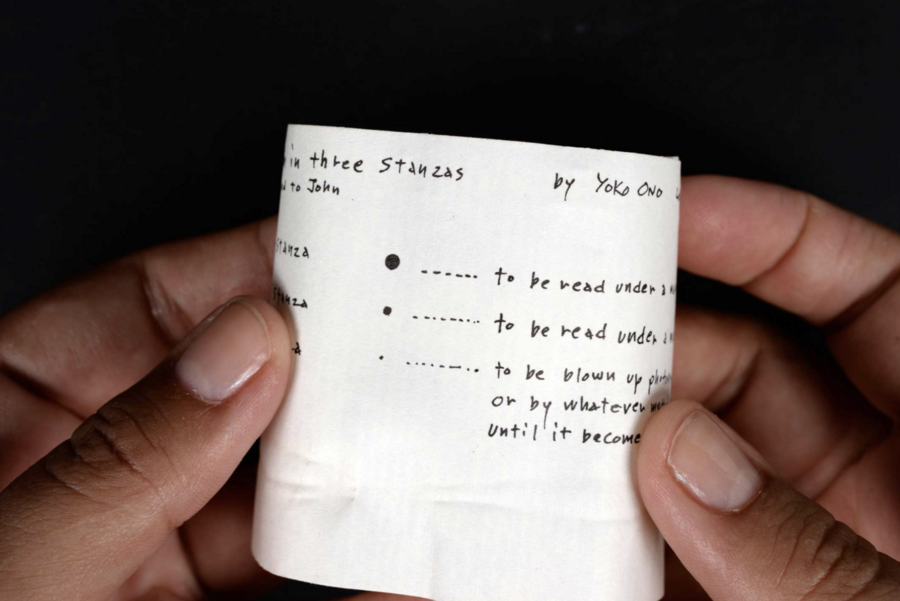 in three Stanzas by Yoko Ono
to John
Stanza
------ to be read under a
Stanza
-------- to be read under a
-------- to be blown up
or by whatever
until it become